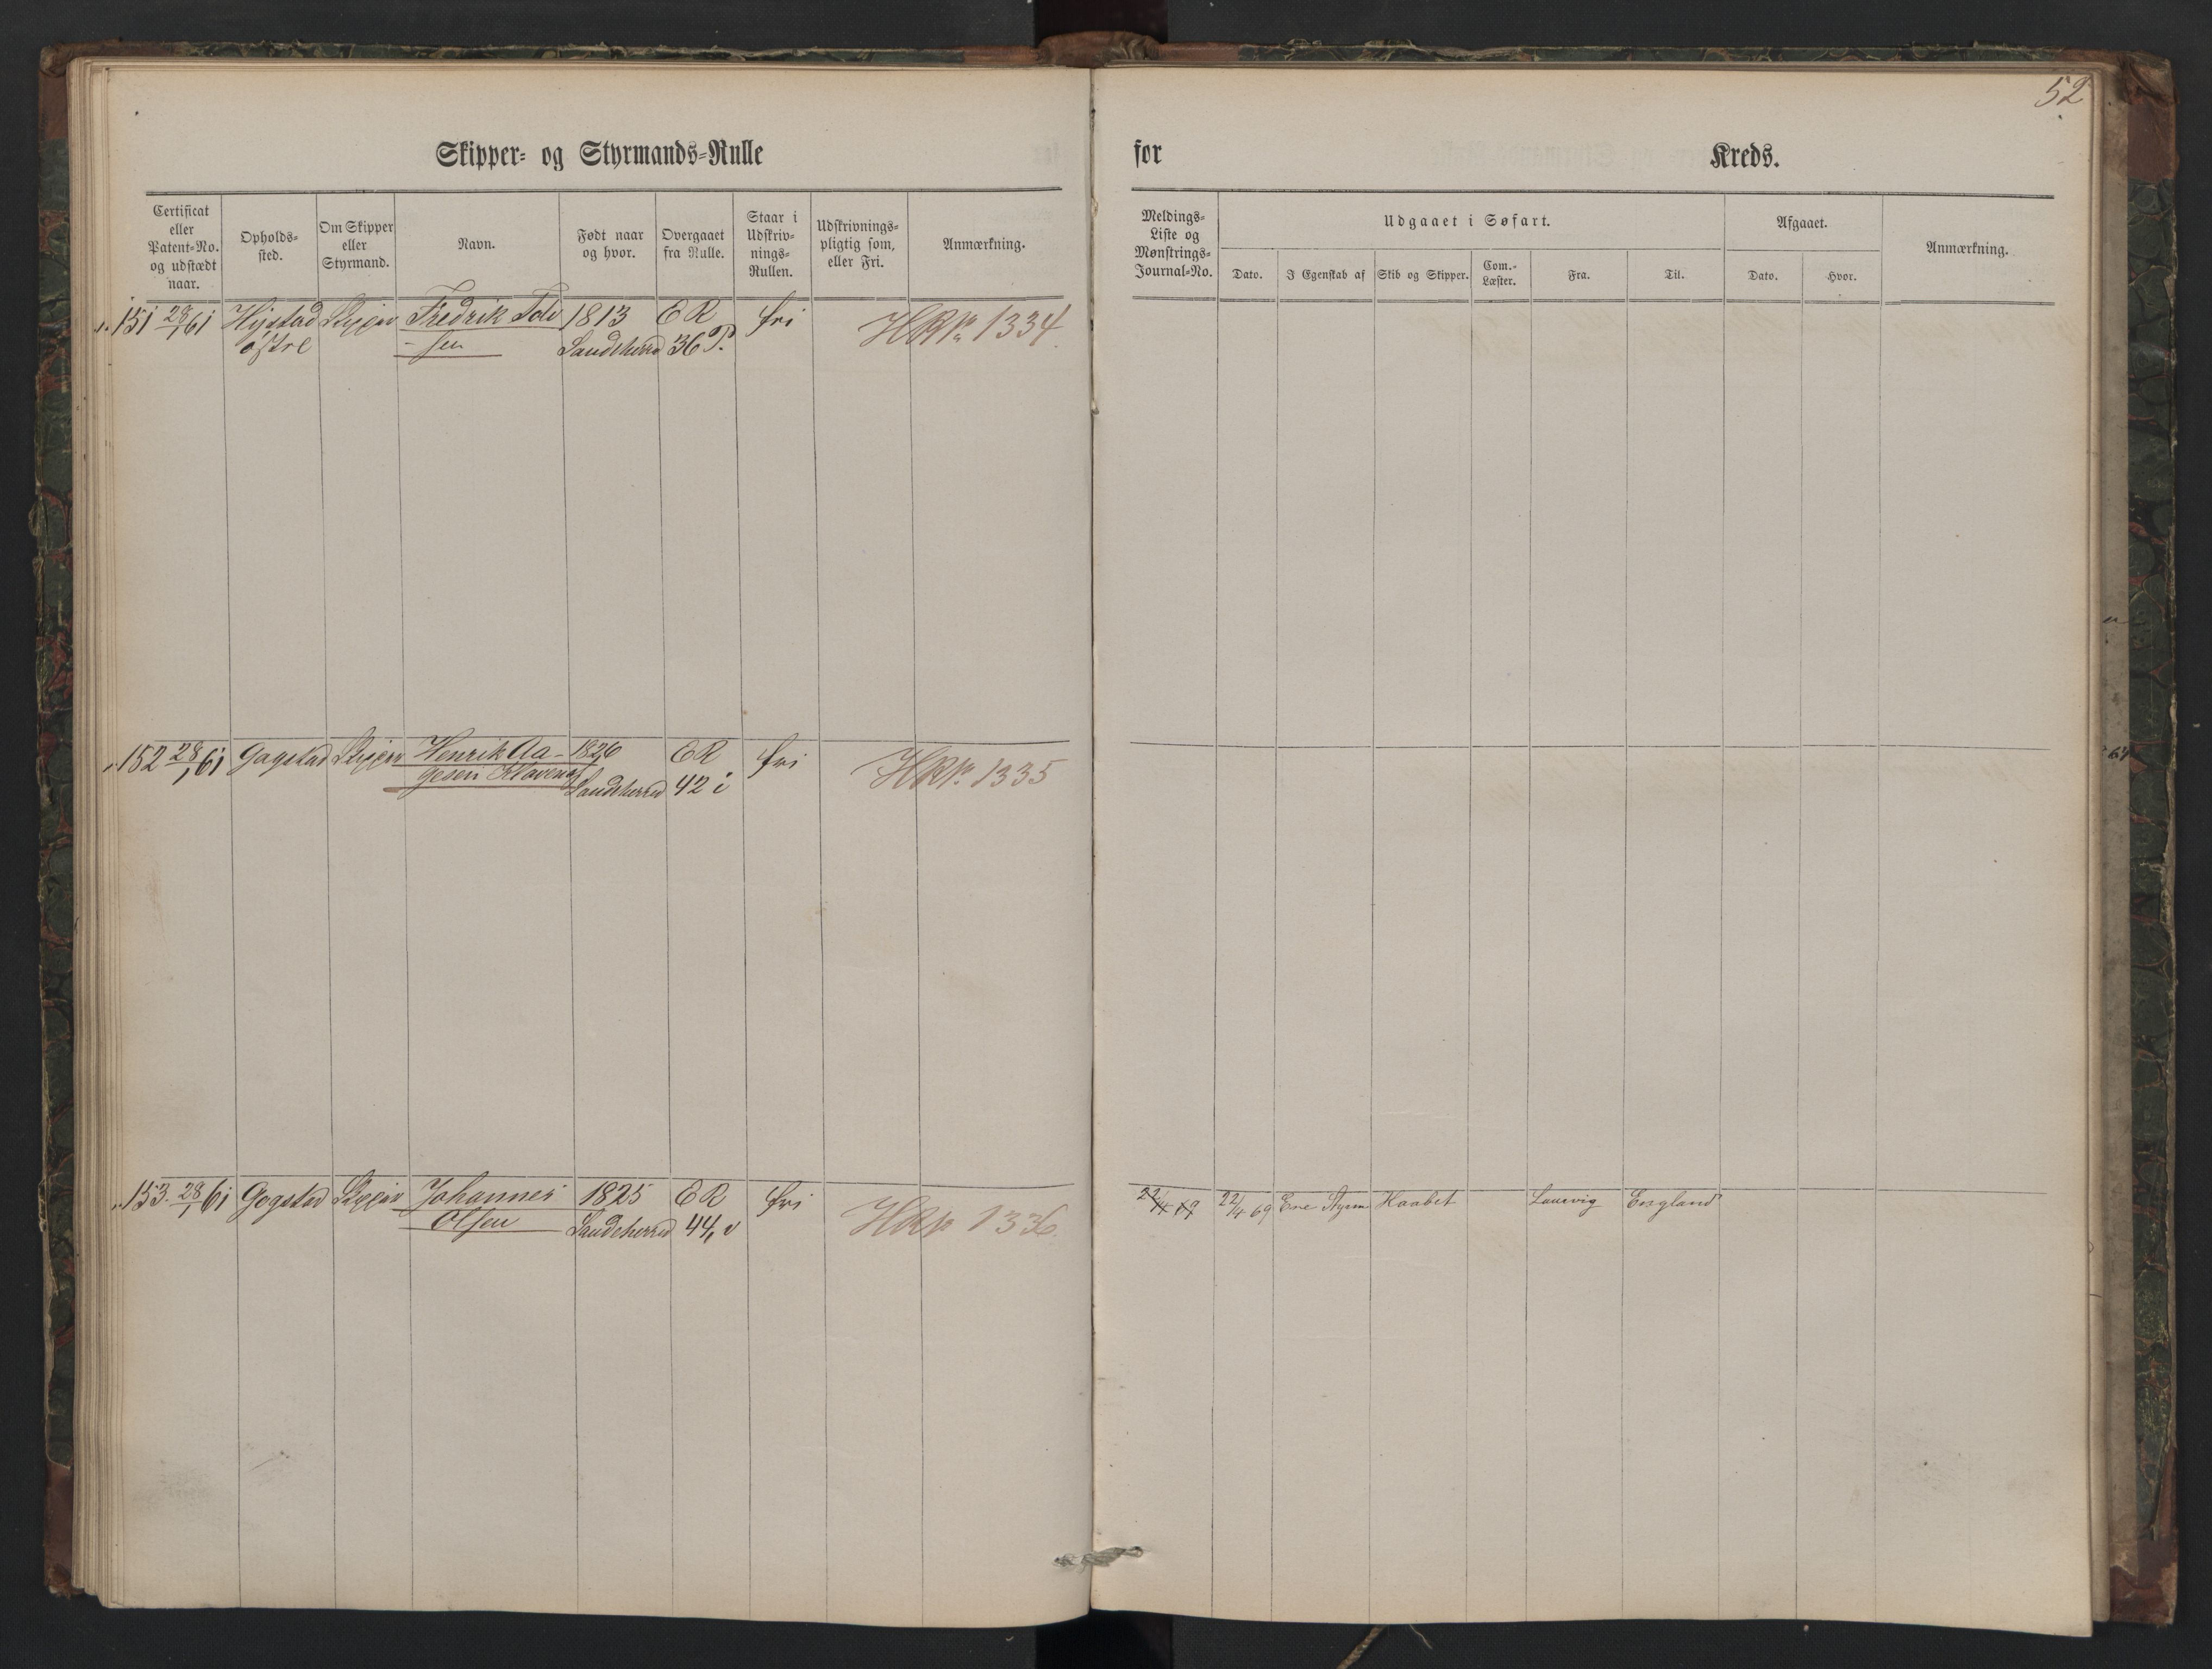 52
Skipper- og Styrmands-Rulle
for Kreds.
Certificat eller Patent-No. og udstædt naar.
Opholds-sted.
Om Skipper eller Styrmand.
Navn.
Født naar og hvor.
Overgaaet fra Rulle.
Staar i Udskriv-nings-Rullen.
Udskrivnings-pligtig som, eller Fri.
Anmærkning.
Meldings-Liste og Mønstrings-Journal-No.
Udgaaet i Søfart.
Dato.
I Egenskab af
Skib og Skipper.
Com.-Læster.
Fra.
Til.
Afgaaet.
Dato.
Hvor.
Anmærkning.
151 28/1 61 Hystad Fredrik 1813 ER fri HRN 1334
østre sen Sandeherred 36
152 28/1 61 Gogstad Skipper Henrik Aa- 1826 ER fri HRN 1335
gesen Klavenes Sandeherred 42
153 28/1 61 Gogstad Skipper Johannes 1825 ER fri HRN 1336
Olsen Sandeherred 44
22/4 69 22/4 69 Ene Styrm Haabet Laurvig England